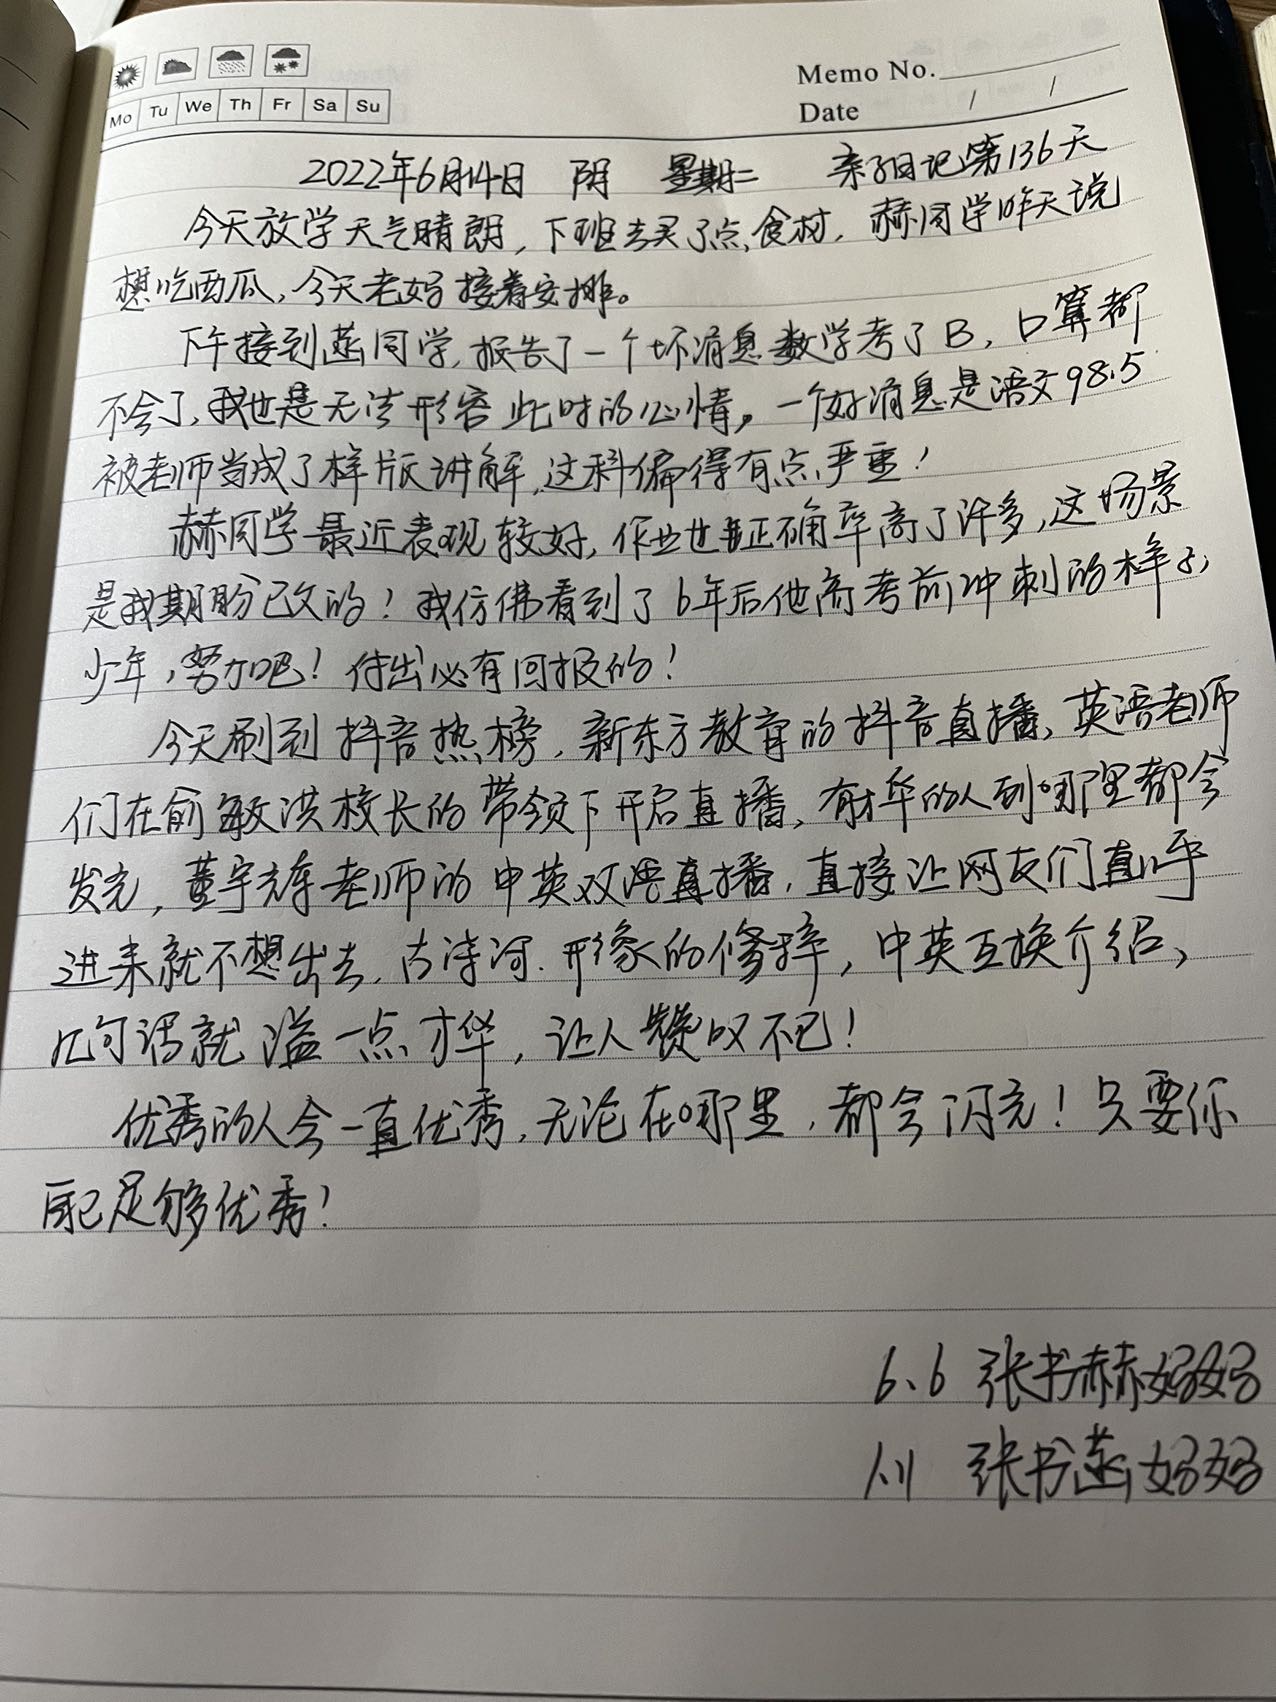 Memo No.
Mo Tu We Th Fr Sa Su
Date / /
2022年6月14日 阴 星期二 亲子日记第136天
今天放学天气晴朗，下班去买了点食材，赫同学昨天说
想吃西瓜，今天老妈接着安排。
下午接到菡同学，报告了一个坏消息数学考了B，口算都
不会了，我也是无法形容此时的心情。一个好消息是语文98.5
被老师当成了样版讲解，这科偏得有点严重！
赫同学最近表现较好，作业也正确率高了许多，这场景
是我期盼已久的！我仿佛看到了6年后他高考前冲刺的样子，
少年，努力吧！付出必有回报的！
今天刷到抖音热榜，新东方教育的抖音直播，英语老师
们在俞敏洪校长的带领下开启直播，有才华的人到哪里都会
发光，董宇辉老师的中英双语直播，直接让网友们直呼
进来就不想出去，古诗词．形象的修辞，中英互换介绍，
几句话就溢一点才华，让人赞叹不已！
优秀的人会一直优秀，无论在哪里，都会闪光！只要你
自己足够优秀！
6.6 张书赫妈妈
1.11 张书菡妈妈